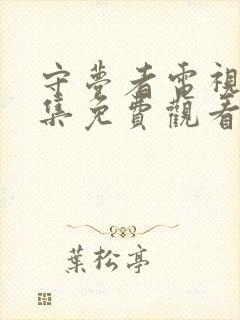 守夢者電視
集免費觀看
葉松亭